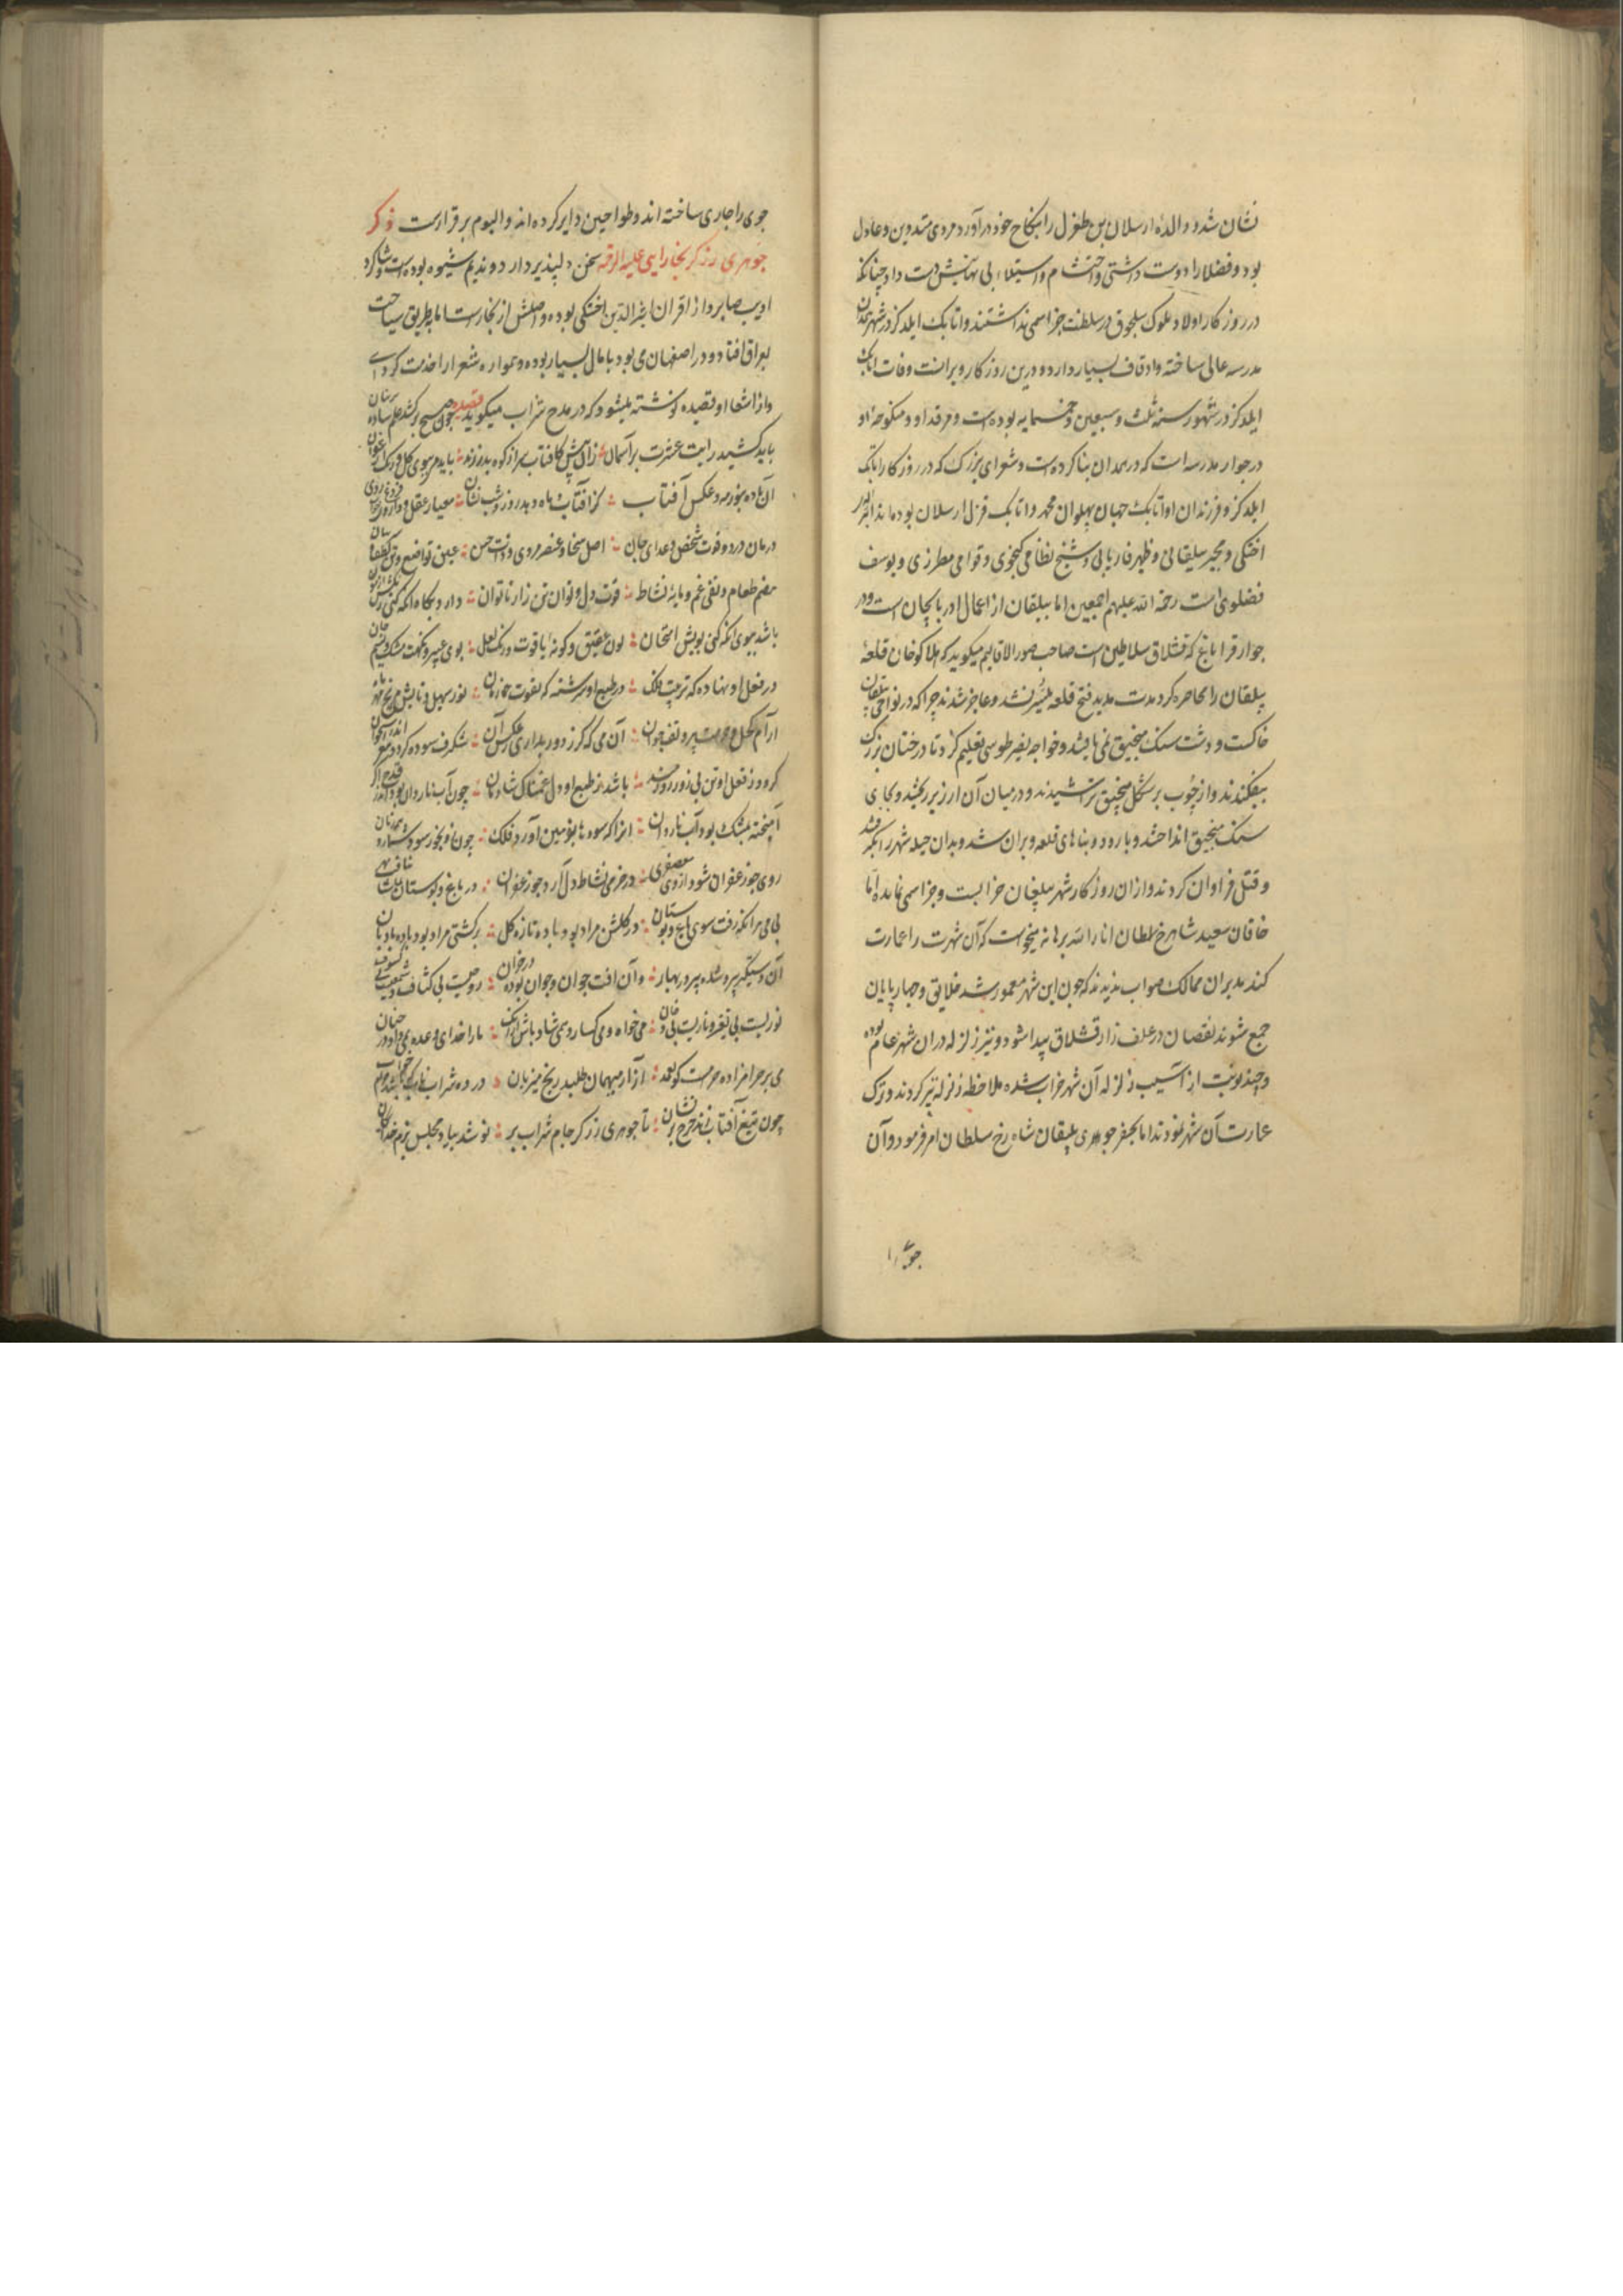 نشان شد و والدهٔ ارسلان بن طغرل را بنکاح خود درآورد مردی متدین و عادل
بود و فضلا را دوست داشتی و احتشام و استیلاء بی نهایتش دست داد چنانکه
در روزکار او اولاد ملوک سلجوق در سلطنت جز اسمی نداشتند و اتابک ایلدکز در شهر همدان
مدرسه عالی ساخته و اوقاف بسیار دارد و درین روزکار ویرانست وفات اتابک
ایلدکز در شهور سنه ثلث و سبعین و خمسمایه بوده است و مرقد او و منکوحه او
در جوار مدرسه است که در همدان بنا کرده است و شعرای بزرک که در روزکار اتابک
ایلدکز و فرزندان او اتابک جهان پهلوان محمد و اتابک قزل ارسلان بوده‌اند اثیر
اخسکی و مجیر بیلقانی و ظهیر فاریابی و شیخ نظامی کنجوی و قوامی مطرزی و یوسف
فضلوی است رحمة الله علیهم اجمعین اما بیلقان از اعمال اذربایجان است و در
جوار قراباغ که قشلاق سلاطین است صاحب صور الاقالیم میکوید که هلاکو خان قلعهٔ
بیلقان را محاصره کرد مدت مدید فتح قلعه میسر نشد و عاجز شدند چرا که در نواحی بیلقان
خاکست و دشت سنک منجنیق نمی یافتند و خواجه نصیر طوسی تعلیم کرد تا درختان بزرک
بیفکندند و از چوب بر شکل منجنیق تراشیدند و در میان آن ارزیز ریختند و بجای
سنک منجنیق انداختند و بارو و بناهای قلعه ویران شد و بدان حیله شهر را بکرفتند
و قتل فراوان کردند و ازان روزکار شهر بیلقان خرابست و جز اسمی نمانده اما
خاقان سعید شاهرخ سلطان انار الله برهانه میخواست که آن شهرت را عمارت
کند مدبران ممالک صواب ندیدند که چون این شهر معمور شد خلایق و چهارپایان
جمع شوند نقصان در علف زار قشلاق پیدا شود و نیز زلزله دران شهر عام بوده
و چند نوبت از آسیب زلزله آن شهر خراب شده ملاحظه زلزله نیز کردند و ترک
عمارت آن شهر نمودند اما بحفر جوهری بیلقان شاه رخ سلطان امر فرمود و آن
جوی را
جوی را جاری ساخته اند و طواحین دایر کرده اند و الیوم برقرارست ذکر
جوهری زرکر بخارایی علیه الرحمه سخن دلپذیر دارد و ندیم شیوه بوده است و شاکرد
ادیب صابر و از اقران اثیر الدین اخسکی بوده و اصلش از بخارست اما بطریق سیاحت
بعراق افتاد و در اصفهان می بود با مال بسیار بوده و همواره شعرا را خدمت کردی
و از اشعار او قصیده نوشته میشود که در مدح شراب میکوید قصیده چون صبح برکشد علم ساده پرنیان
باید کشید رایت عشرت بر آسمان زان پیش کافتاب سر از کوه برزند باید می بوی کل و رنک ارغوان
آن باده چو مه و عکس آفتاب کز آفتاب ماه دهد روز و شب نشان معیار عقل و
درمان درد و قوت شخص و غذای جان اصل سخا و عنصر مردی و ذات حسن عین تواضع و
هضم طعام و نفی غم و مایهٔ نشاط قوت دل و توان تن زار ناتوان دارد بکاه آنکه کنی
باشد ببوی آنکه کنی بویش امتحان لون عقیق و کونهٔ یاقوت و رنک لعل بوی عبیر و نکهت مشک و نسیم جان
در فعل او نهاده که تربیت فلک در طبع او سرشته که بقوت نور سهیل و تابش مریخ
آن می که کر ز دور بداری ز عکس آن شنکرف سوده کردد مغز اندر استخوان
کردد ز فعل او تن بی زور زورمند باشد ز طبع او دل غمناک شادمان چون آب ناردان بود
آمیخته بمشک بود آب ناردان
روی چو زعفران شود از وی معصفری در خرمی نشاط دل آرد چو زعفران در باغ و بوستان
بی می هرانکه رفت سوی باغ و بوستان در کلشن مراد بود باده تازه کل بر کشتی مراد بود باده بادبان
آن دستکیر پیر و شده پیر در بهار وان آفت جوان و جوان بوده در خزان روحیست بی کثافت و شمسیست بی کسوف
نوریست بی تغیر و ناریست بی دخان می خواه و می کسار و بمی شاد باش ازانک ما را خدای وعده بمی داد در جنان
می بر حرامزاده حرامست کو بعمد آزار میهمان طلبد رنج میزبان در ده شراب ناب
چون تیغ آفتاب زند چرخ بر نشان تا جوهری زرکر جام شراب بر نوشد بیاد مجلس بزم خدایکان